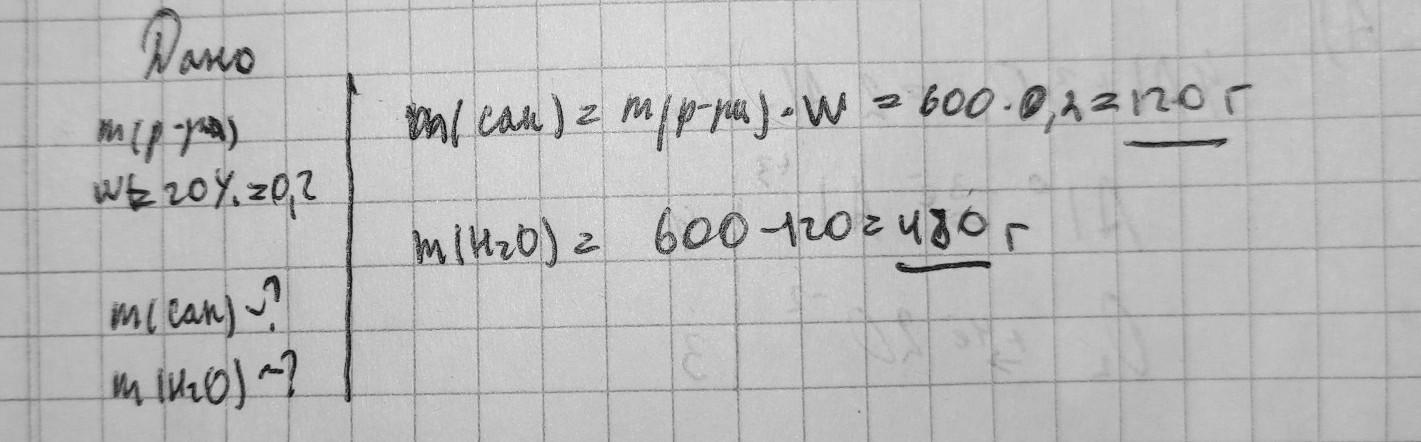 Дано
m(р-ра)
W = 20% = 0,2
m(сах) - ?
m(H₂O) - ?
m(сах) = m(р-ра) · W = 600 · 0,2 = 120 г
m(H₂O) = 600 - 120 = 480 г